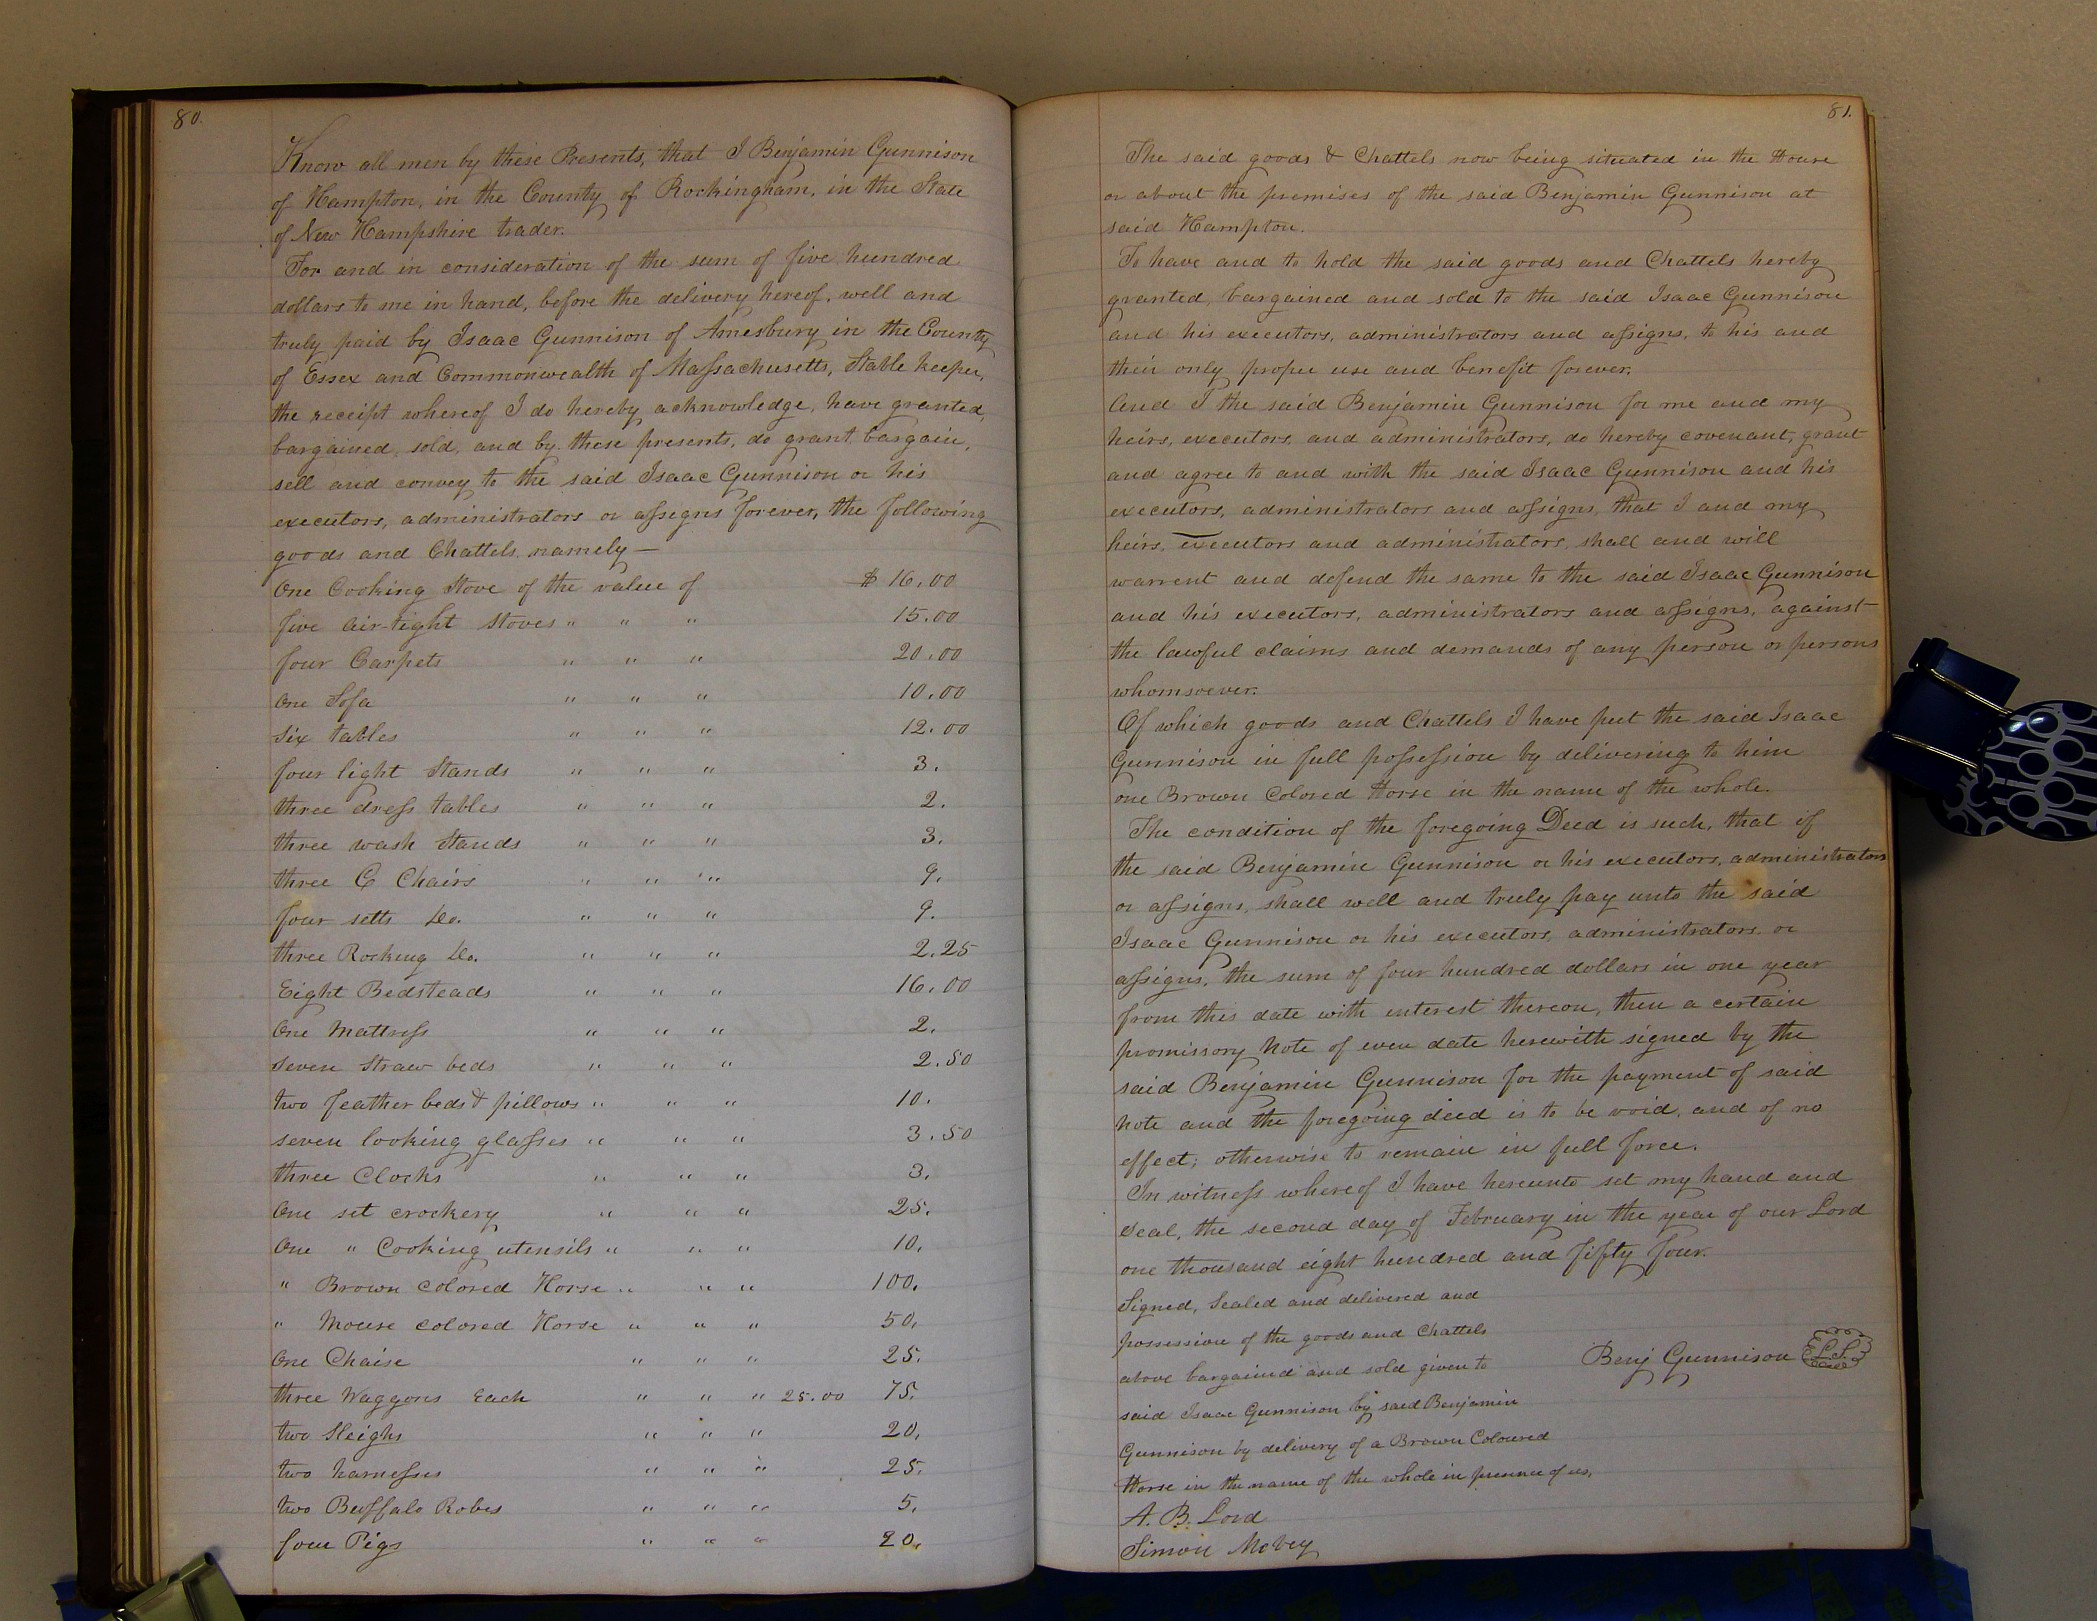 80.
Know all men by these Presents, that I Benjamin Gunnison
of Hampton, in the County of Rockingham, in the State
of New Hampshire trader.
For and in consideration of the sum of five hundred
dollars to me in hand, before the delivery hereof, well and
truly paid by Isaac Gunnison of Amesbury in the County
of Essex and Commonwealth of Massachusetts, Stable keeper,
the receipt whereof I do hereby acknowledge, have granted,
bargained, sold, and by these presents, do grant, bargain,
sell and convey to the said Isaac Gunnison or his
executors, administrators or assigns forever, the following
goods and Chattels, namely —
One Cooking Stove of the value of $16.00
five air-tight stoves " " " 15.00
four Carpets " " " 20.00
One Sofa " " " 10.00
Six tables " " " 12.00
four light Stands " " " 3.
three dress tables " " " 2.
three wash Stands " " " 3.
three C Chairs " " " 9.
four setts Do. " " " 9.
three Rocking Do. " " " 2.25
Eight Bedsteads " " " 16.00
One Mattress " " " 2.
Seven Straw beds " " " 2.50
two feather beds & pillows " " " 10.
seven looking glasses " " " 3.50
three Clocks " " " 3.
One set crockery " " " 25.
One " Cooking utensils " " " 10.
" Brown colored Horse " " " 100.
" Mouse colored Horse " " " 50.
One Chaise " " " 25.
three Waggons Each " " " 25.00 75.
two Sleighs " " " 20.
two harnesses " " " 25.
two Buffalo Robes " " " 5.
four Pigs " " " 20.
81.
The said goods & Chattels now being situated in the House
or about the premises of the said Benjamin Gunnison at
said Hampton.
To have and to hold the said goods and Chattels hereby
granted, bargained and sold to the said Isaac Gunnison
and his executors, administrators and assigns, to his and
their only proper use and benefit forever.
And I the said Benjamin Gunnison for me and my
heirs, executors, and administrators, do hereby covenant, grant
and agree to and with the said Isaac Gunnison and his
executors, administrators and assigns, that I and my
heirs, executors and administrators, shall and will
warrent and defend the same to the said Isaac Gunnison
and his executors, administrators and assigns, against
the lawful claims and demands of any person or persons
whomsoever.
Of which goods and Chattels I have put the said Isaac
Gunnison in full possession by delivering to him
one Brown Colored Horse in the name of the whole.
The condition of the foregoing Deed is such, that if
the said Benjamin Gunnison or his executors, administrators
or assigns, shall well and truly pay unto the said
Isaac Gunnison or his executors, administrators or
assigns, the sum of four hundred dollars in one year
from this date with interest thereon, then a certain
promissory Note of even date herewith signed by the
said Benjamin Gunnison for the payment of said
Note and the foregoing deed is to be void, and of no
effect; otherwise to remain in full force.
In witness whereof I have hereunto set my hand and
Seal, the second day of February in the year of our Lord
one thousand eight hundred and fifty four.
Signed, Sealed and delivered and
possession of the goods and Chattels
above bargained and sold given to Benj Gunnison L.S.
said Isaac Gunnison by said Benjamin
Gunnison by delivery of a Brown Coloured
Horse in the name of the whole in presence of us,
A. B. Lord
Simon